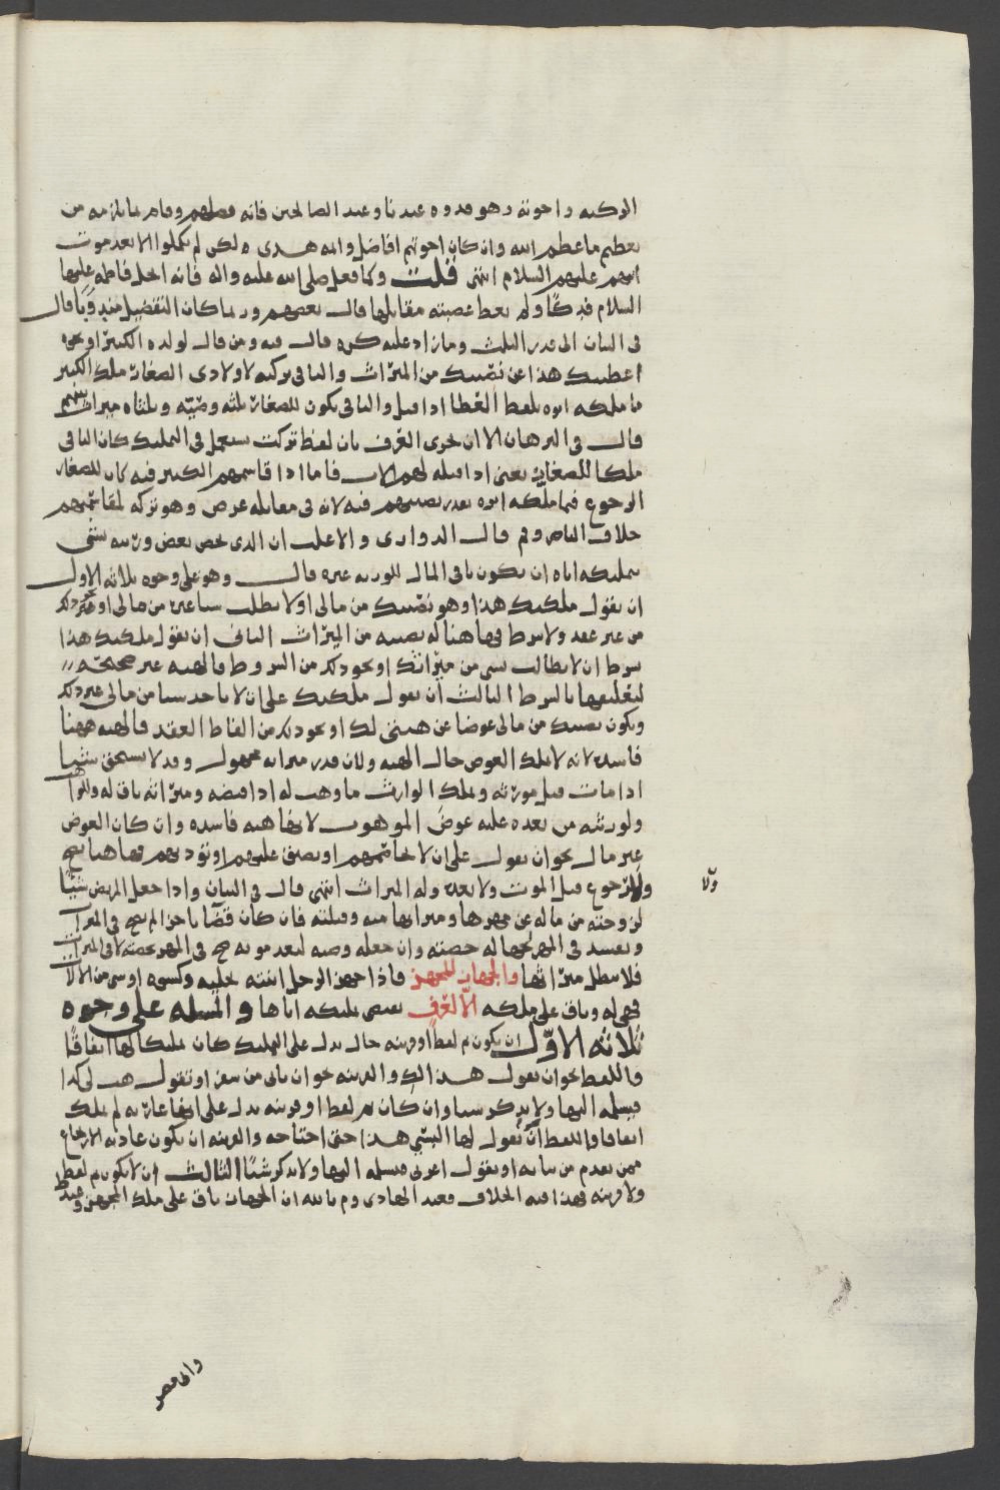 الزكيه واخوته وهو قدوه عبدنا وعبد الصالحين فانه فضلهم وقام بما يلزمه من
تعظيم ما عظم الله وان كان اخوتهم افاضل وايمه هدى ه لكن لم يكملوا الا بعد موت
ابيهم عليهم السلام انتهى قلت وكما فعل صلى الله عليه واله فانه انحل فاطمه عليها
السلام فدكًا ولم يعط عصبته مقابلها قال بعضهم وربما كان التفضيل مندوبًا قال
فى البيان الى قدر الثلث وما زاد عليه كره قال فيه ومن قال لولده الكبير او نحوه
اعطيتك هذا عن نصيبك من الميراث والباقى تركته لاولادى الصغار ملك الكبير
ما ملكه ابوه بلفظ العطا اذا قبل والباقى يكون للصغار ثلثه وصيّه وثلثاه ميراث بينهم
قال فى البرهان الا ان يجرى العرف بان لفظ تركت يستعمل فى التمليك كان الباقى
ملكا للصغار يعنى اذا قبله لهم الاب فاما اذا قاسمهم الكبير فيه كان للصغار
الرجوع فيما ملكه ابوه بقدر نصيبهم فيه لانه فى مقابله عوض وهو تركه لمقاسمتهم
خلاف الناصر وم قال الدوارى والاغلب ان الذى يخص بعض ورثته بشى
بتمليكه اياه ان يكون باقى المال للورثه غيره قال وهو على وجوه ثلاثه الاول
ان يقول ملكتك هذا وهو نصيبك من مالى او لا تطلب شيا غيره من مالى او نحو ذلك
من غير عقد ولا شرط فهاهنا له نصيبه من الميراث الثانى ان يقول ملكتك هذا
بشرط ان لا تطالب بشى من ميراثك او نحو ذلك من الشروط فالهبه غير صحيحه
لتعليقها بالشرط الثالث ان يقول ملكتك على ان لا تاخذ شيا من مالى غير ذلك
ويكون نصيبك من مالى عوضا عن هبتى لك او نحو ذلك من الفاظ العقد فالهبه ههنا
فاسده لانه لا يملك العوض حال الهبه ولان قدر ميراثه مجهول وقد لا يستحق شيا
اذا مات قبل مورثه ويملك الوارث ما وهب له اذا قبضه وميراثه باق له وللواهب
ولورثته من بعده عليه عوض الموهوب لانها هبه فاسده وان كان العوض
غير مال نحو ان يقول على ان لا تخاصمهم او تصنى عليهم او تؤذيهم فهاهنا يصح
وله الرجوع قبل الموت ولا بعده وله الميراث انتهى قال فى البيان واذا جعل المريض شيًا
ولا
لزوجته من ماله عن مهرها وميراثها منه وقبلته فان كان قضًا ناجزا لم يصح فى الميراث
ويفسد فى المهر لجهاله حصته وان جعله وصيه لبعد موته صح فى المهر بحصته لا فى الميراث
فلا يبطل ميراثها والجهاز للمجهز فاذا جهز الرجل ابنته بحليه وكسوه او شى من الالات
فهى له وباق على ملكه الا لعرف يقضى بتمليكه اياها والمسله على وجوه
ثلاثه الاوّل ان يكون ثم لفظ او قرينه حال يدل على التمليك كان تمليكا لها اتفاقًا
واللفظ نحو ان يقول هذا لك والقرينه نحو ان ياتى من سفر او تقول هب لى كذا
فيسلمه اليها ولا يذكر شيا وان كان ثم لفظ او قرينه يدل على انها عاريه لم يملك
اتفاقا واللفظ ان يقول لها البسي هذا حتى احتاجه والقرينه ان يكون عادته الارتجاع
ممن تقدم من بناته او يقول اعرنى فيسلمه اليها ولا يذكر شيًا الثالث ان لا يكون ثم لفظ
ولا قرينه فهذا فيه الخلاف فعند الهادى وم بالله ان الجهاز باق على ملك المجهز وعند